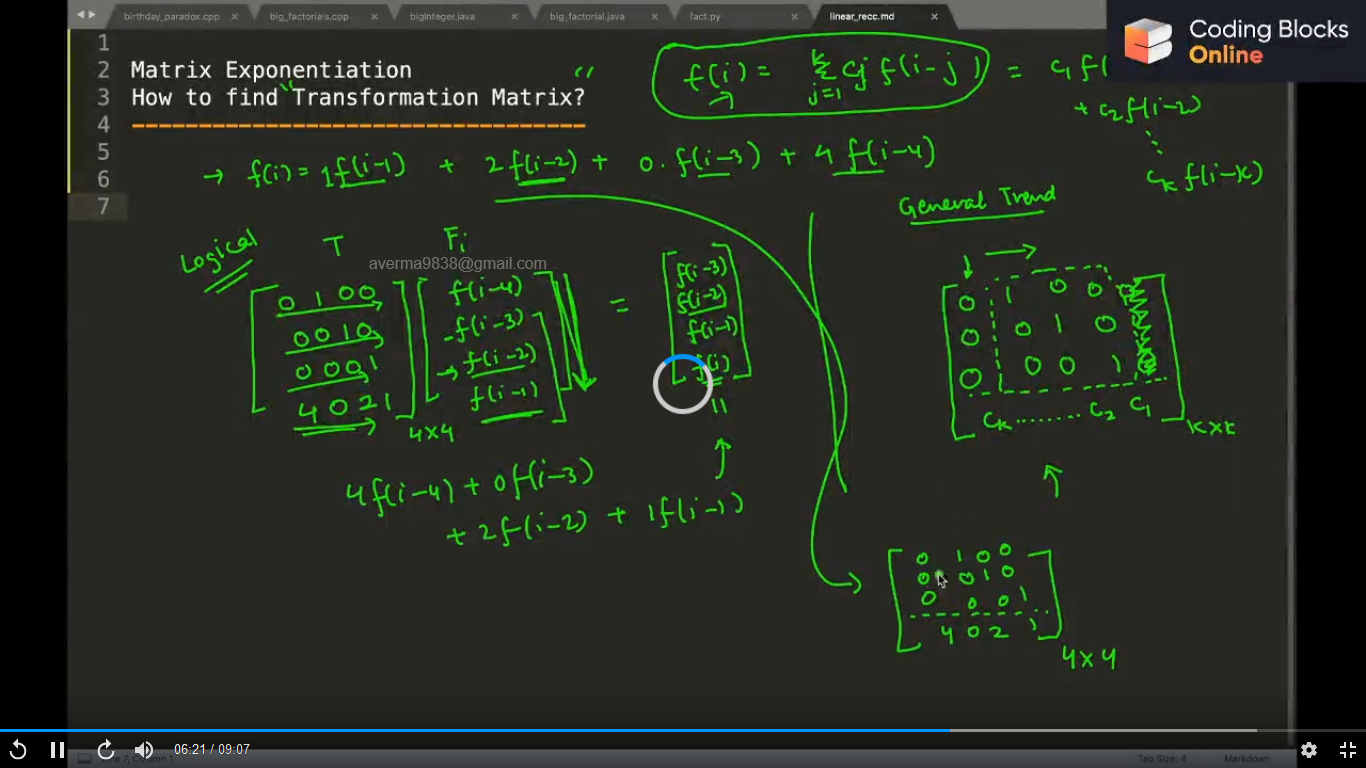 birthday_paradox.cpp × big_factorials.cpp × bigInteger.java × big_factorial.java × fact.py × linear_recc.md ×
Coding Blocks
Online
1
2 Matrix Exponentiation
3 How to find Transformation Matrix?
4 -----------------------------------
5
6
7
f(i) = Σ cj f(i-j) = c1 f(
k
j=1
+ c2 f(i-2)
⋮
ck f(i-k)
→ f(i) = 1f(i-1) + 2f(i-2) + 0.f(i-3) + 4f(i-4)
General Trend
Logical
T Fi
averma9838@gmail.com
0 1 0 0
0 0 1 0
0 0 0 1
4 0 2 1
4×4
f(i-4)
f(i-3)
→ f(i-2)
f(i-1)
=
f(i-3)
f(i-2)
f(i-1)
f(i)
11
4f(i-4) + 0f(i-3)
+ 2f(i-2) + 1f(i-1)
0 1 0 0
0 0 1 0
0 0 0 1
ck ........ c2 c1
k×k
0 1 0 0
0 0 1 0
0 0 0 1
4 0 2 1
4×4
06:21 / 09:07
Line 7, Column 1 Tab Size: 4 Markdown